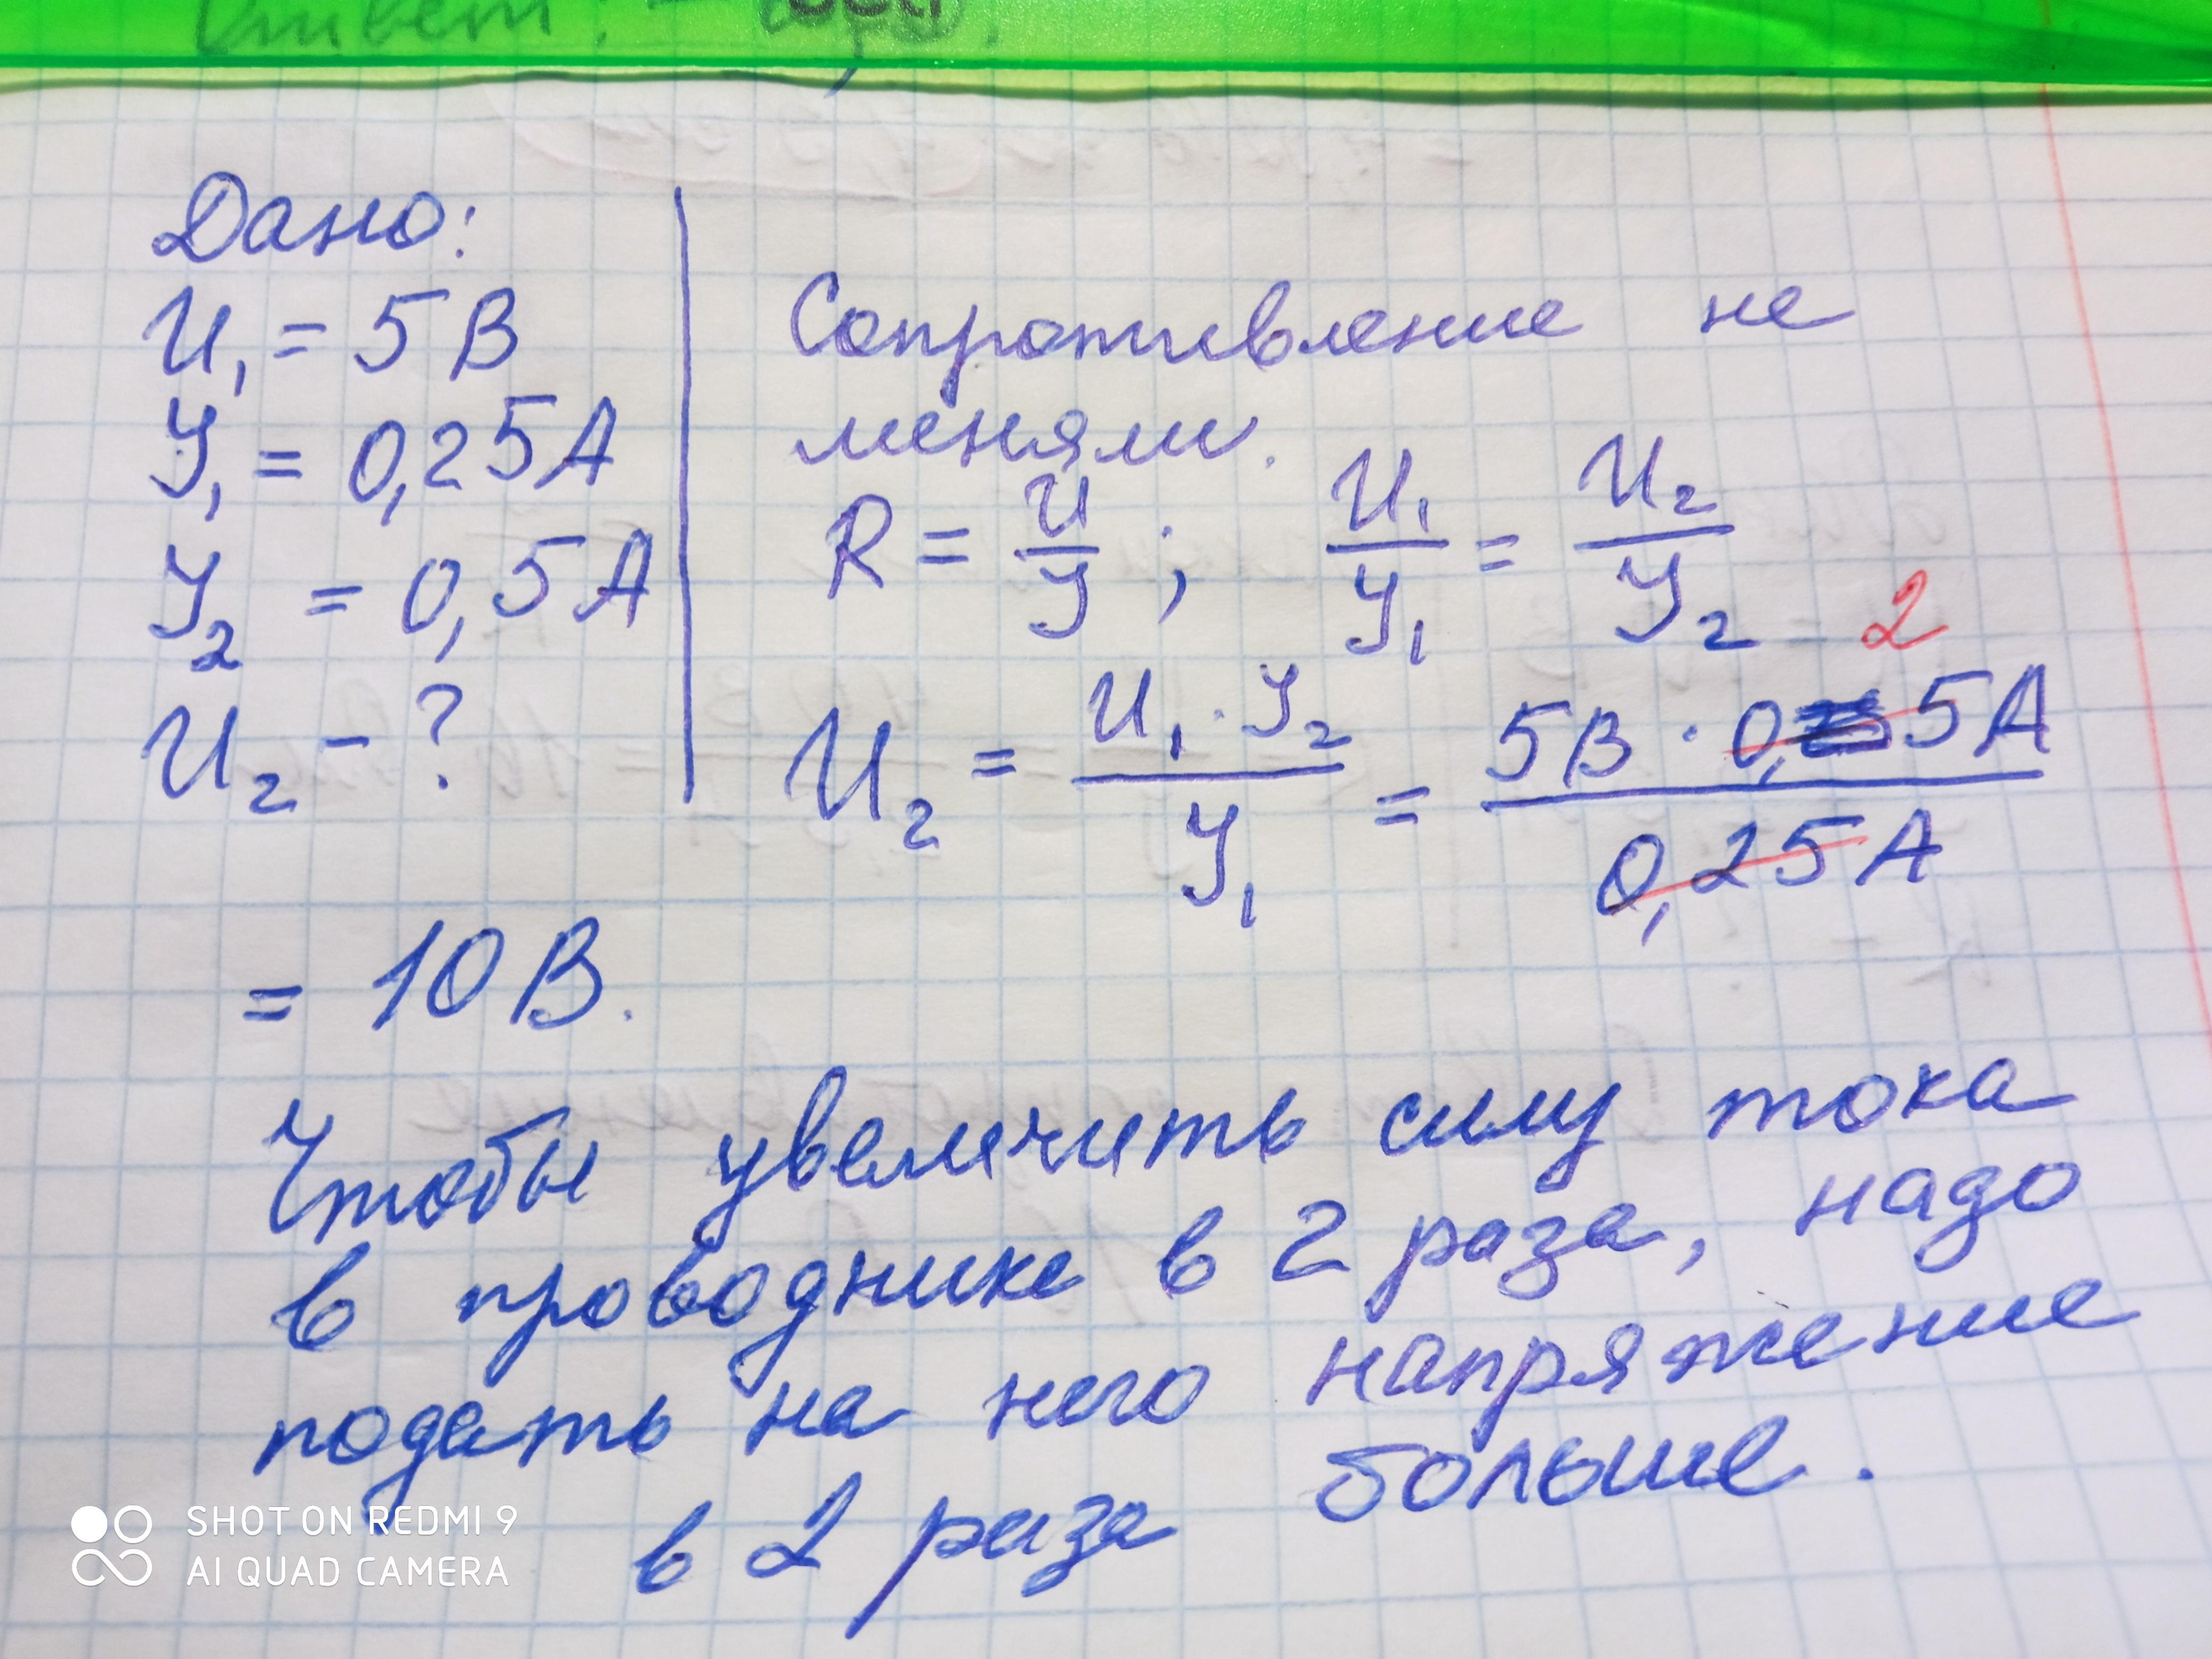 Ответ:
Дано:
U₁ = 5 В
У₁ = 0,25 А
У₂ = 0,5 А
U₂ - ?
Сопротивление не
меняли.
R = U/У ; U₁/У₁ = U₂/У₂
2
U₂ = U₁ · У₂ / У₁ = 5В · 0,5А / 0,25 А
= 10 В.
Чтобы увеличить силу тока
в проводнике в 2 раза, надо
подать на него напряжение
в 2 раза больше.
SHOT ON REDMI 9
AI QUAD CAMERA